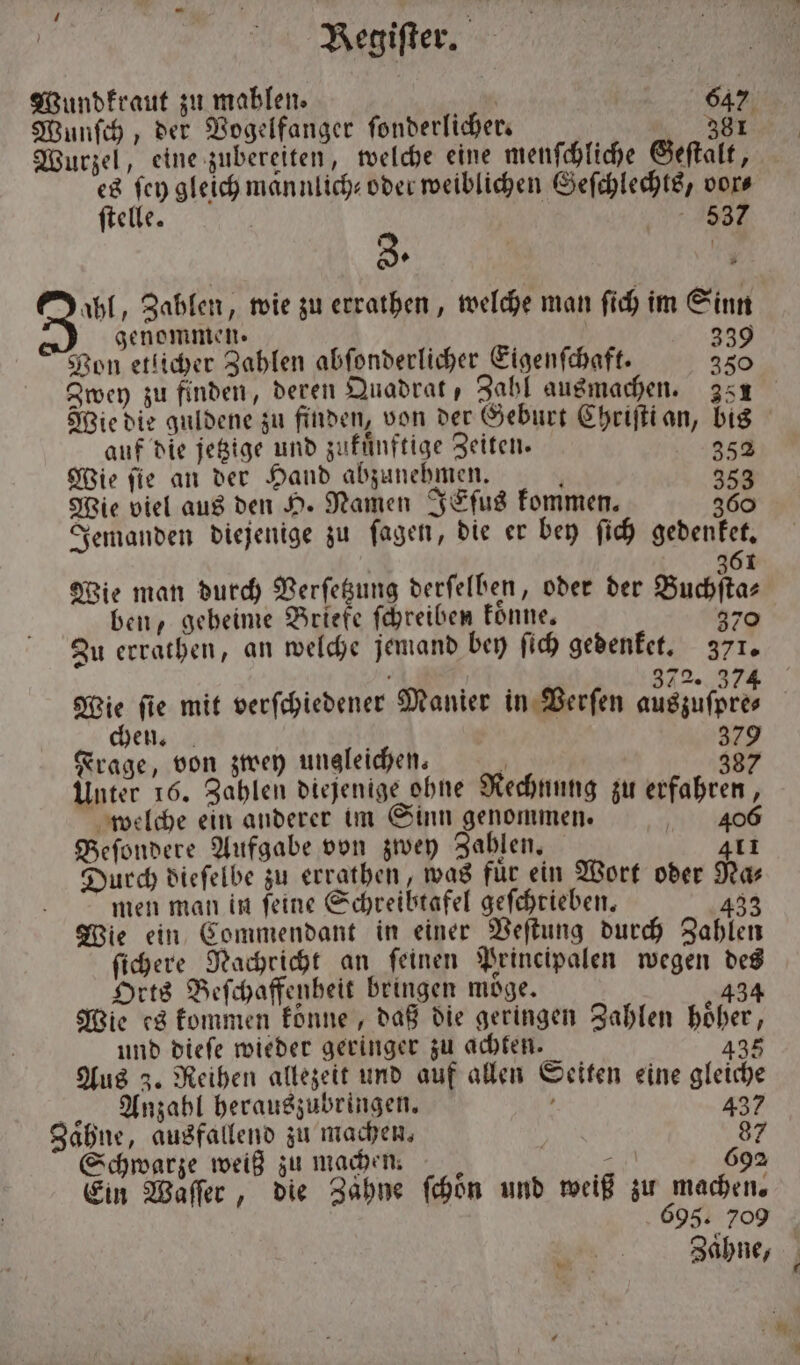 Regiſter.
Wundkraut zu mahlen. 647
Wunſch, der Vogelfanger ſonderlicher. 381
Wurzel, eine zubereiten, welche eine menſchliche Geſtalt,
es ſey gleich männlich- oder weiblichen Geſchlechts, vor-
ſtelle. 537
Z.
Zahl, Zahlen, wie zu errathen, welche man ſich im Sinn
genommen. 339
Von etlicher Zahlen abſonderlicher Eigenſchaft. 350
Zwey zu finden, deren Quadrat, Zahl ausmachen. 351
Wie die guldene zu finden, von der Geburt Chriſti an, bis
auf die jetzige und zukünftige Zeiten. 352
Wie ſie an der Hand abzunehmen. 353
Wie viel aus den H. Namen JEſus kommen. 360
Jemanden diejenige zu ſagen, die er bey ſich gedenket.
361
Wie man durch Verſetzung derſelben, oder der Buchſta-
ben, geheime Briefe ſchreiben könne. 370
Zu errathen, an welche jemand bey ſich gedenket. 371.
372. 374
Wie ſie mit verſchiedener Manier in Verſen auszuſpre-
chen. 379
Frage, von zwey ungleichen. 387
Unter 16. Zahlen diejenige ohne Rechnung zu erfahren,
welche ein anderer im Sinn genommen. 406
Beſondere Aufgabe von zwey Zahlen. 411
Durch dieſelbe zu errathen, was für ein Wort oder Na-
men man in ſeine Schreibtafel geſchrieben. 433
Wie ein Commendant in einer Veſtung durch Zahlen
ſichere Nachricht an ſeinen Principalen wegen des
Orts Beſchaffenheit bringen möge. 434
Wie es kommen könne, daß die geringen Zahlen höher,
und dieſe wieder geringer zu achten. 435
Aus 3. Reihen allezeit und auf allen Seiten eine gleiche
Anzahl herauszubringen. 437
Zähne, ausfallend zu machen. 87
Schwarze weiß zu machen. 692
Ein Waſſer, die Zähne ſchön und weiß zu machen.
695. 709
Zähne,